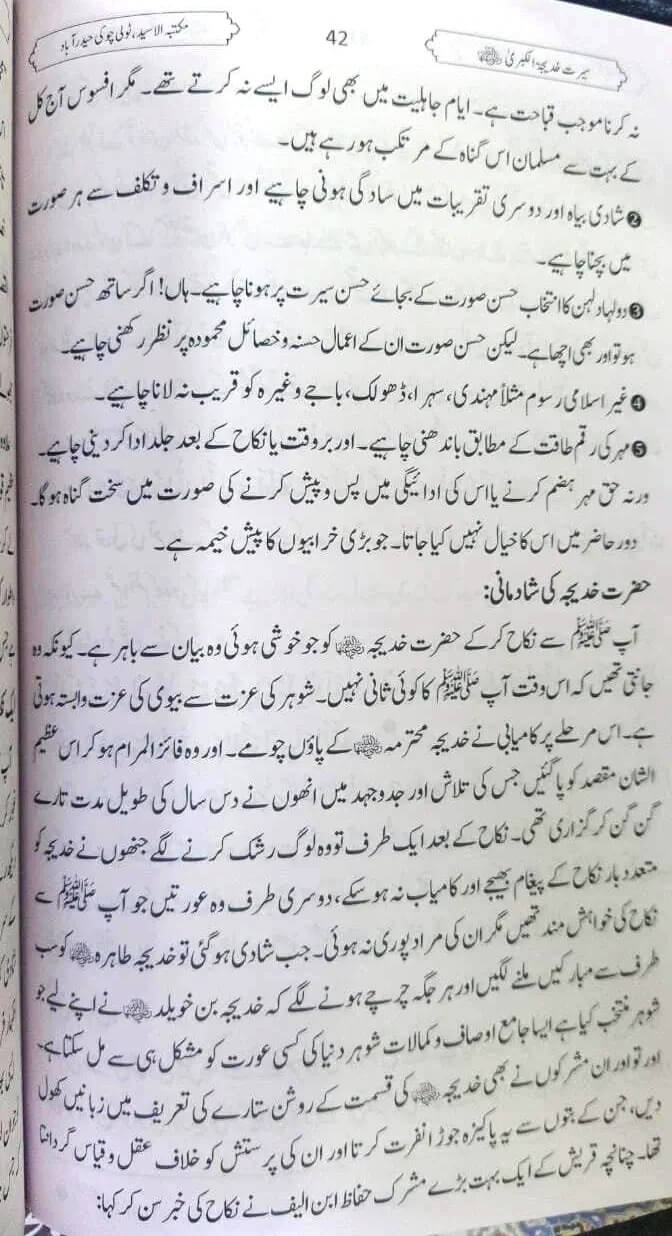 سیرت خدیجۃ الکبریٰ رضی اللہ عنہا
42
مکتبہ الاسید، ٹولی چوکی حیدرآباد
نہ کرنا موجب قباحت ہے۔ ایام جاہلیت میں بھی لوگ ایسے نہ کرتے تھے۔ مگر افسوس آج کل
کے بہت سے مسلمان اس گناہ کے مرتکب ہو رہے ہیں۔
❷ شادی بیاہ اور دوسری تقریبات میں سادگی ہونی چاہیے اور اسراف و تکلف سے ہر صورت
میں بچنا چاہیے۔
❸ دولہا دلہن کا انتخاب حسن صورت کے بجائے حسن سیرت پر ہونا چاہیے۔ ہاں! اگر ساتھ حسن صورت
ہو تو اور بھی اچھا ہے۔ لیکن حسن صورت ان کے اعمال حسنہ و خصائل محمودہ پر نظر رکھنی چاہیے۔
❹ غیر اسلامی رسوم مثلاً مہندی، سہرا، ڈھولک، باجے وغیرہ کو قریب نہ لانا چاہیے۔
❺ مہر کی رقم طاقت کے مطابق باندھنی چاہیے۔ اور بروقت یا نکاح کے بعد جلد ادا کر دینی چاہیے۔
ورنہ حق مہر ہضم کرنے یا اس کی ادائیگی میں پس و پیش کرنے کی صورت میں سخت گناہ ہوگا۔
دور حاضر میں اس کا خیال نہیں کیا جاتا۔ جو بڑی خرابیوں کا پیش خیمہ ہے۔
حضرت خدیجہ کی شادمانی:
آپ ﷺ سے نکاح کر کے حضرت خدیجہ رضی اللہ عنہا کو جو خوشی ہوئی وہ بیان سے باہر ہے۔ کیونکہ وہ
جانتی تھیں کہ اس وقت آپ ﷺ کا کوئی ثانی نہیں۔ شوہر کی عزت سے بیوی کی عزت وابستہ ہوتی
ہے۔ اس مرحلے پر کامیابی نے خدیجہ محترمہ رضی اللہ عنہا کے پاؤں چومے۔ اور وہ فائز المرام ہو کر اس عظیم
الشان مقصد کو پا گئیں جس کی تلاش اور جدوجہد میں انھوں نے دس سال کی طویل مدت تارے
گن گن کر گزاری تھی۔ نکاح کے بعد ایک طرف تو وہ لوگ رشک کرنے لگے جنھوں نے خدیجہ کو
متعدد بار نکاح کے پیغام بھیجے اور کامیاب نہ ہو سکے، دوسری طرف وہ عورتیں جو آپ ﷺ سے
نکاح کی خواہش مند تھیں مگر ان کی مراد پوری نہ ہوئی۔ جب شادی ہو گئی تو خدیجہ طاہرہ رضی اللہ عنہا کو سب
طرف سے مبارکیں ملنے لگیں اور ہر جگہ چرچے ہونے لگے کہ خدیجہ بن خویلد رضی اللہ عنہا نے اپنے لیے جو
شوہر منتخب کیا ہے ایسا جامع اوصاف و کمالات شوہر دنیا کی کسی عورت کو مشکل ہی سے مل سکتا ہے۔
اور تو اور ان مشرکوں نے بھی خدیجہ رضی اللہ عنہا کی قسمت کے روشن ستارے کی تعریف میں زبانیں کھول
دیں، جن کے بتوں سے یہ پاکیزہ جوڑا نفرت کرتا اور ان کی پرستش کو خلاف عقل و قیاس گردانتا
تھا۔ چنانچہ قریش کے ایک بہت بڑے مشرک حفاظ ابن الیف نے نکاح کی خبر سن کر کہا: